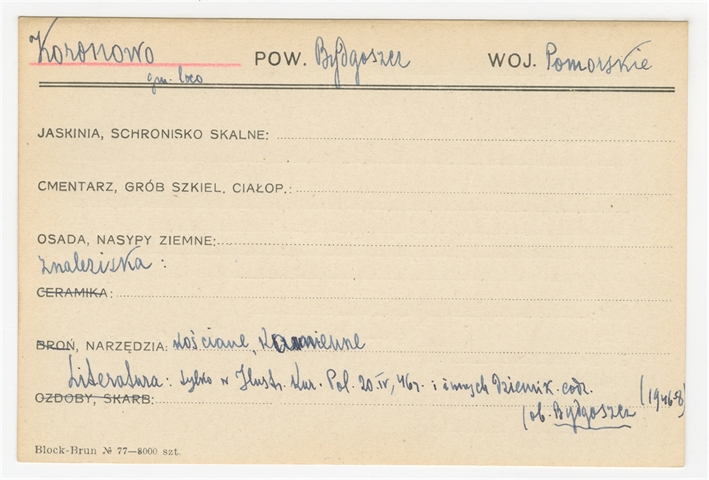 Koronowo POW. Bydgoszcz WOJ. Pomorskie
gm. loco
JASKINIA, SCHRONISKO SKALNE:
CMENTARZ, GRÓB SZKIEL. CIAŁOP.:
OSADA, NASYPY ZIEMNE:
Znaleziska :
CERAMIKA:
BROŃ, NARZĘDZIA: kościane, kamienne
Literatura: tylko w Ilustr. Kur. Pol. 20.IV.46r. i innych dziennik. codz.
OZDOBY, SKARB: (1946-8)
(ob. Bydgoszcz
Block-Brun № 77—8000 szt.